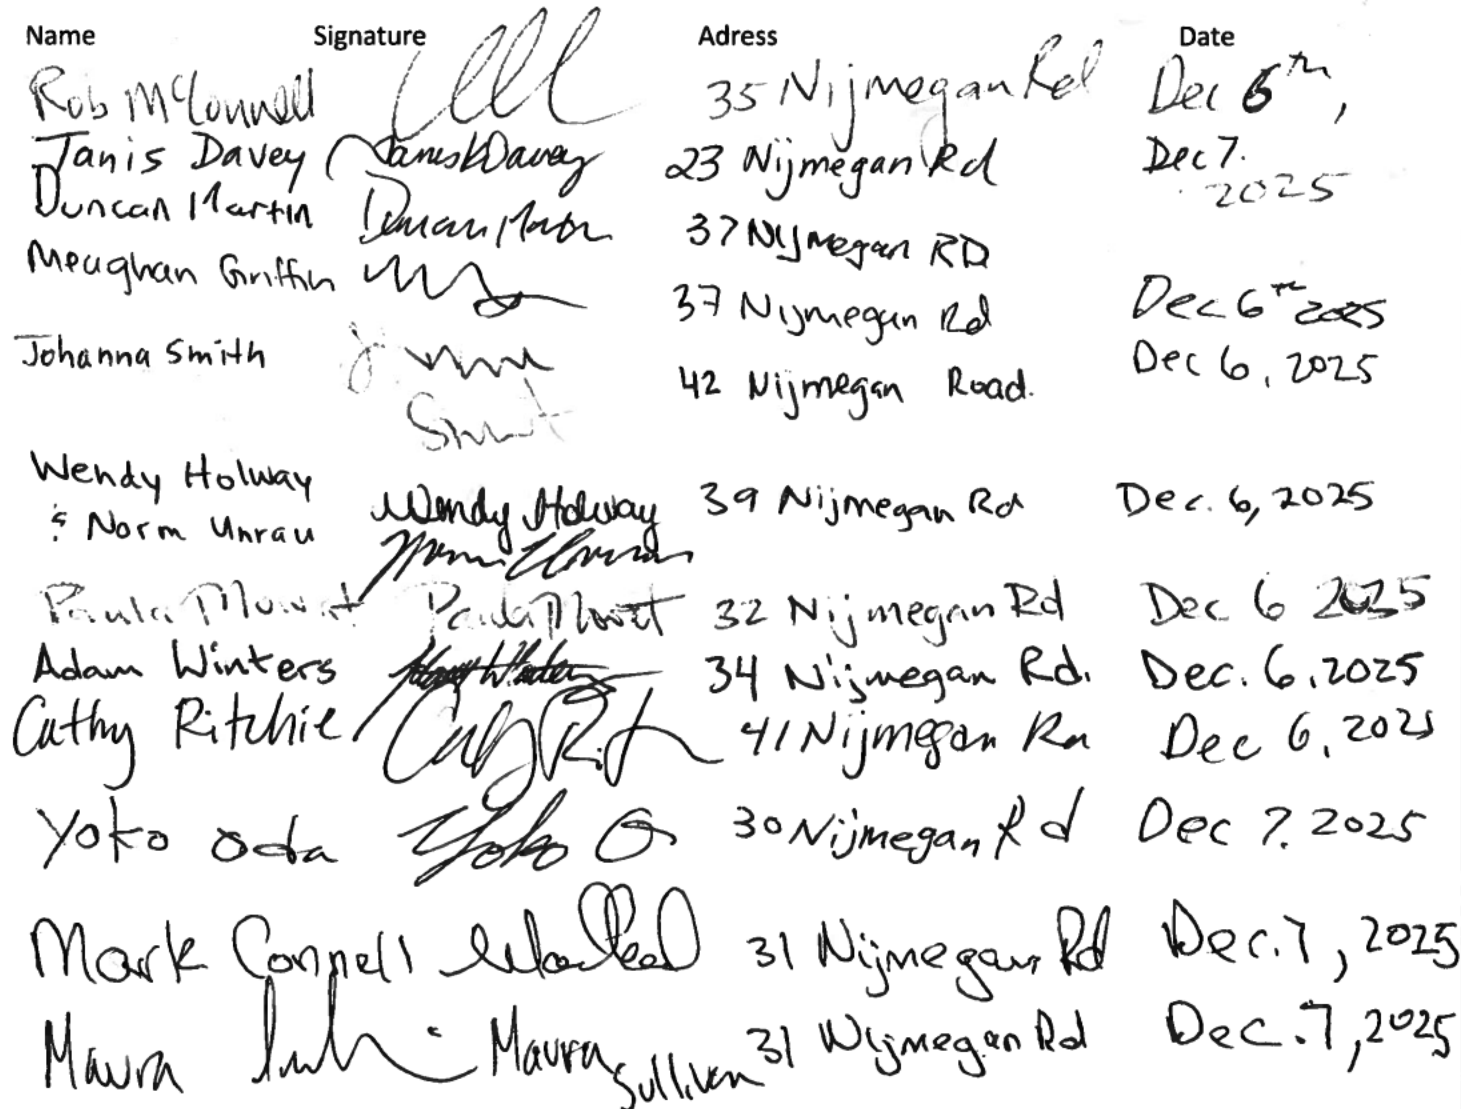 Name Signature Adress Date
Rob McConnell 35 Nijmegan Rd Dec 6th,
Janis Davey Janis Davey 23 Nijmegan Rd Dec 7.
2025
Duncan Martin Duncan Martin 37 Nijmegan RD
Meaghan Griffin 37 Nijmegan Rd Dec 6th 2025
Johanna Smith 42 Nijmegan Road. Dec 6, 2025
Wendy Holway Wendy Holway 39 Nijmegan Rd Dec. 6, 2025
& Norm Unrau
Paula Mowat Paula Mowat 32 Nijmegan Rd Dec 6 2025
Adam Winters 34 Nijmegan Rd. Dec. 6, 2025
Cathy Ritchie 41 Nijmegan Rd Dec 6, 2025
Yoko Oda Yoko O 30 Nijmegan Rd Dec 7. 2025
Mark Connell 31 Nijmegan Rd Dec. 7, 2025
Maura Maura Sullivan 31 Nijmegan Rd Dec. 7, 2025